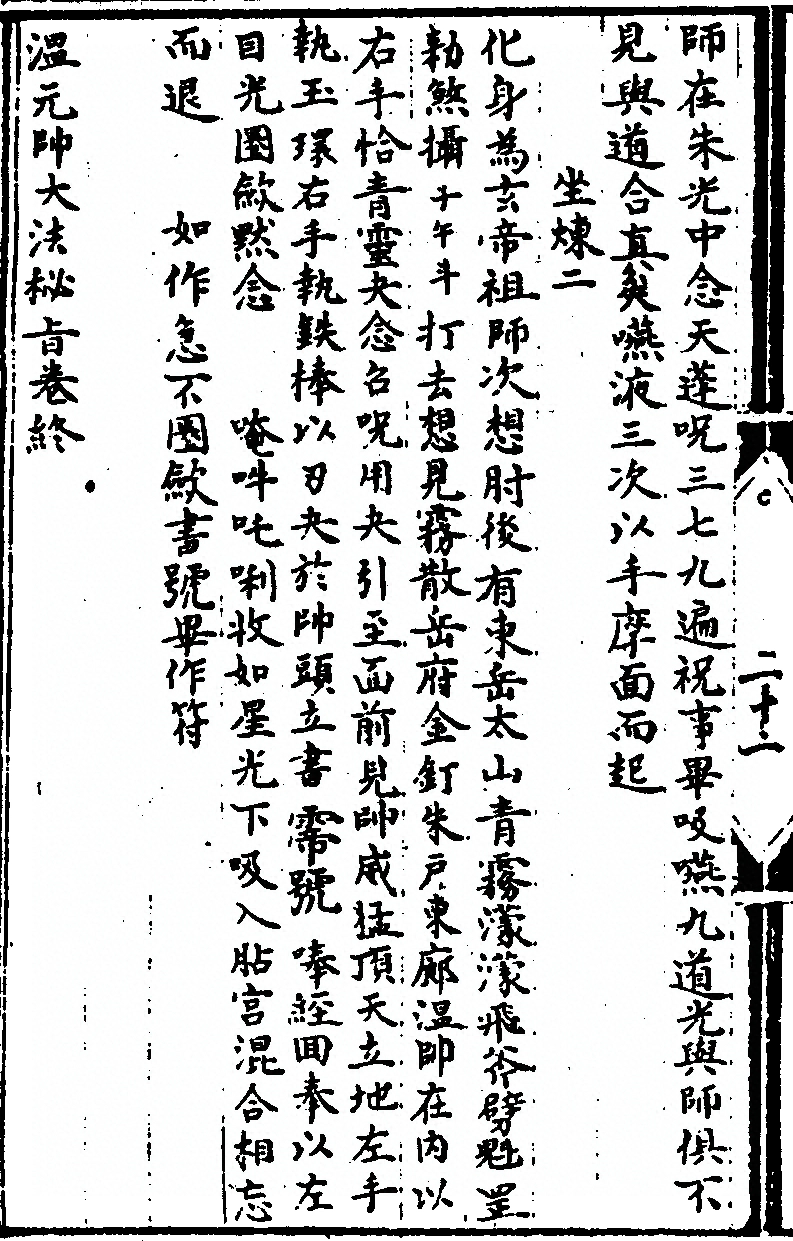 師在朱光中念天蓬呪三七九遍祝事畢吸嚥九道光與師俱不
見與道合真矣嚥液三次以手摩面而起
坐煉二
化身為玄帝祖師次想肘後有東岳太山青霧濛濛飛斧劈魁罡
勑煞攝子午斗打去想見霧散岳府金釘朱户東廊溫帥在内以
右手恰青靈夬念召呪用夬引至面前見帥威猛頂天立地左手
執玉環右手執鉄棒以刃夬於帥頭立書 號 唪經囬奉以左
目光圏歛黙念 唵吽吒唎收如星光下吸入胋宫混合相忘
而退 如作急不圏歛書號畢作符
溫元帥大法秘旨卷終
二十二